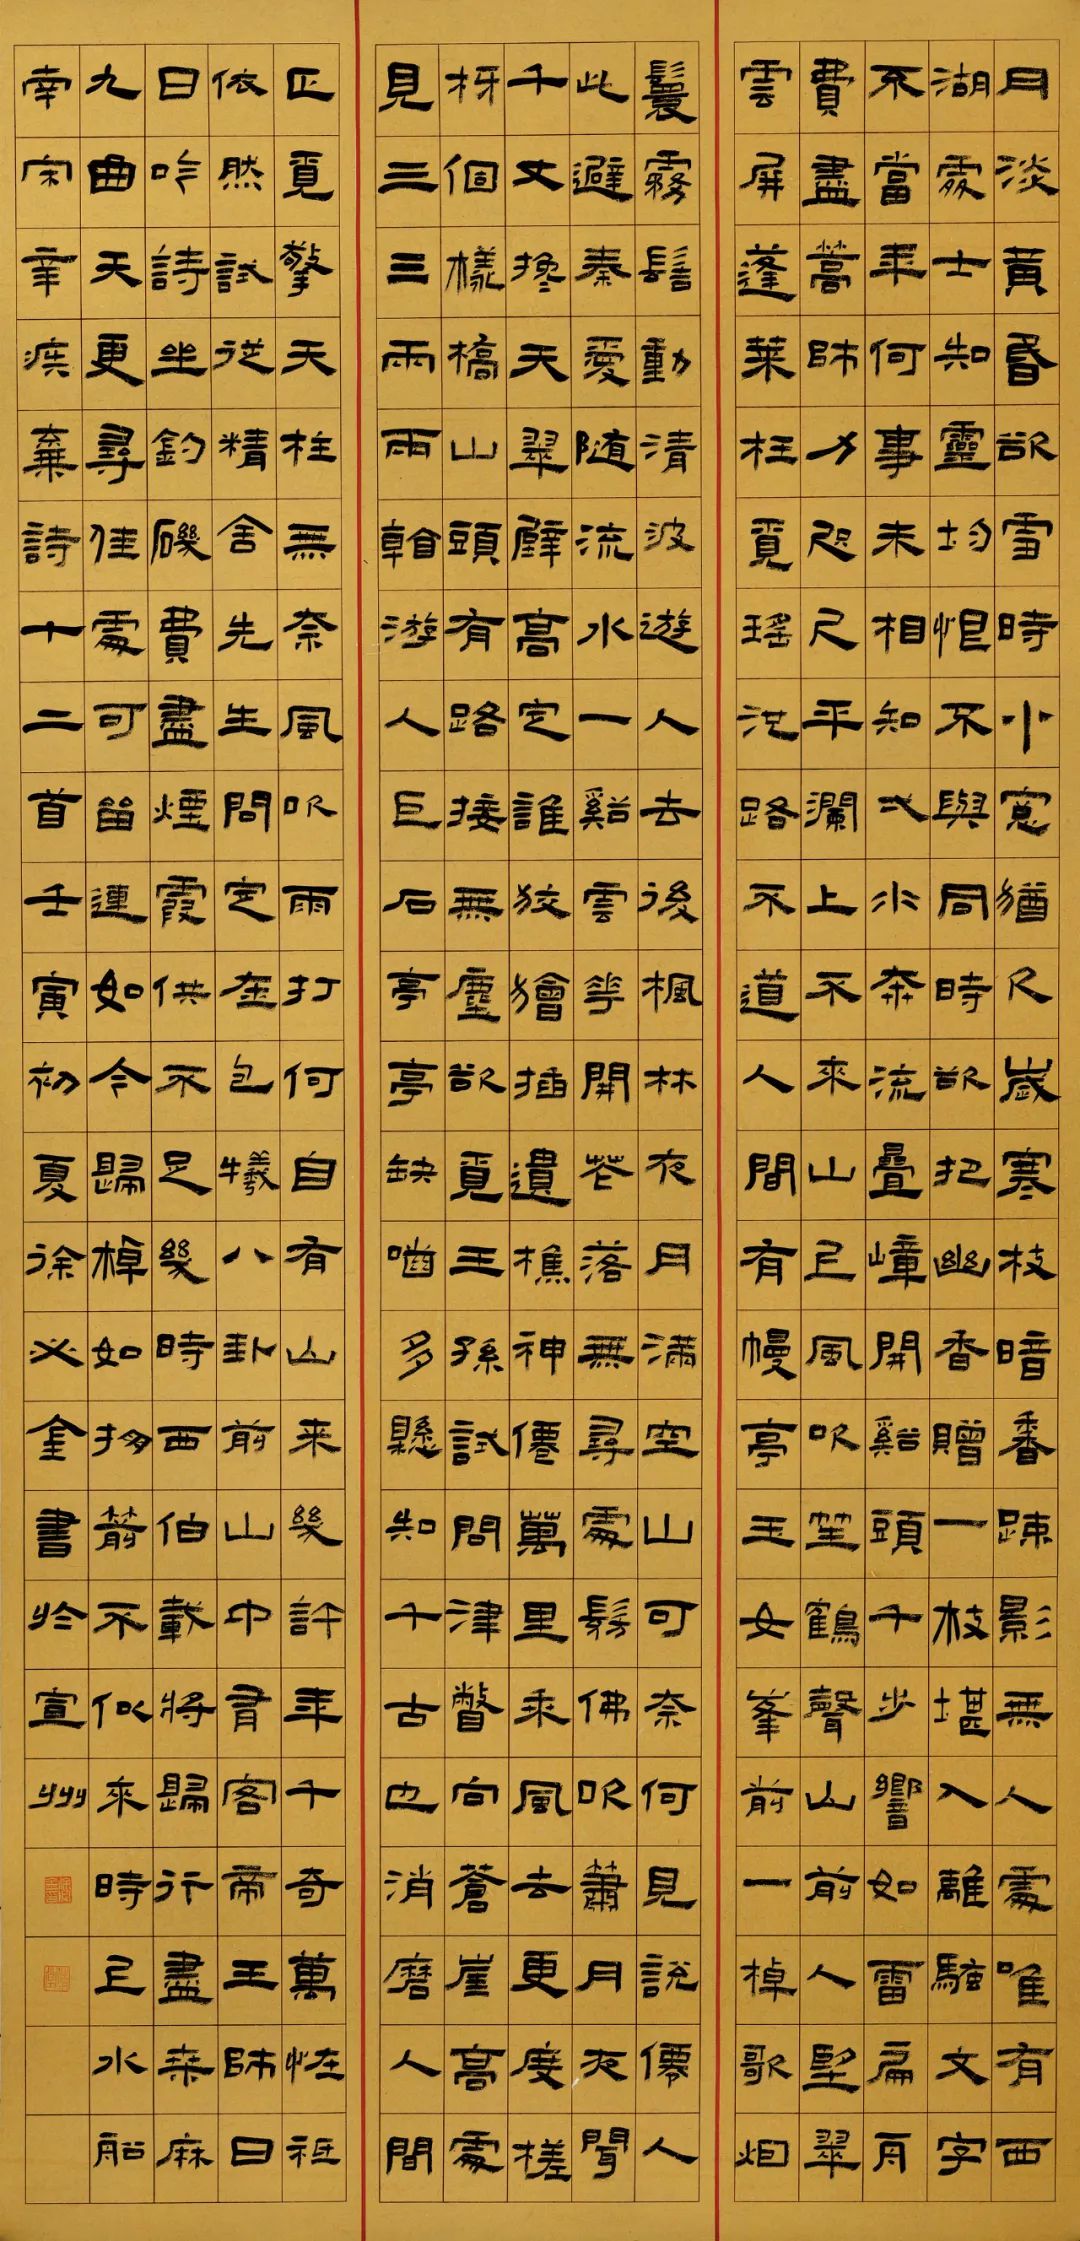 月淡黃昏欲雪時小窓猶欠歲寒枝暗香踈影無人處唯有西
湖處士知靈均恨不與同時欲把幽香贈一枝堪入離騷文字
不當年何事未相知弌水奔流疊嶂開谿頭千步響如雷扁舟
費盡蒿師力咫尺平瀾上不來山上風吹笙鶴聲山前人望翠
雲屏蓬萊枉覓瑤池路不道人間有幔亭玉女峯前一棹歌烟
鬟霧髻動清波遊人去後楓林夜月滿空山可奈何見說僊人
此避秦愛隨流水一谿雲花開花落無尋處髣佛吹簫月夜聞
千丈搀天翠壁高定誰狡獪插遺樵神僊萬里乘風去更度槎
枒個樣橋山頭有路接無塵欲覓王孫試問津瞥向蒼崖高處
見三三兩兩看游人巨石亭亭缺嚙多懸知千古也消磨人間
正覓擎天柱無奈風吹雨打何自有山來幾許年千奇萬怪祗
依然試從精舍先生問定在包犧八卦前山中有客帝王師日
日吟詩坐釣磯費盡煙霞供不足幾時西伯載將歸行盡桑麻
九曲天更尋佳處可留連如今歸棹如箭不似來時上水船
南宋辛疾棄詩十二首壬寅初夏徐必奎書於宣州